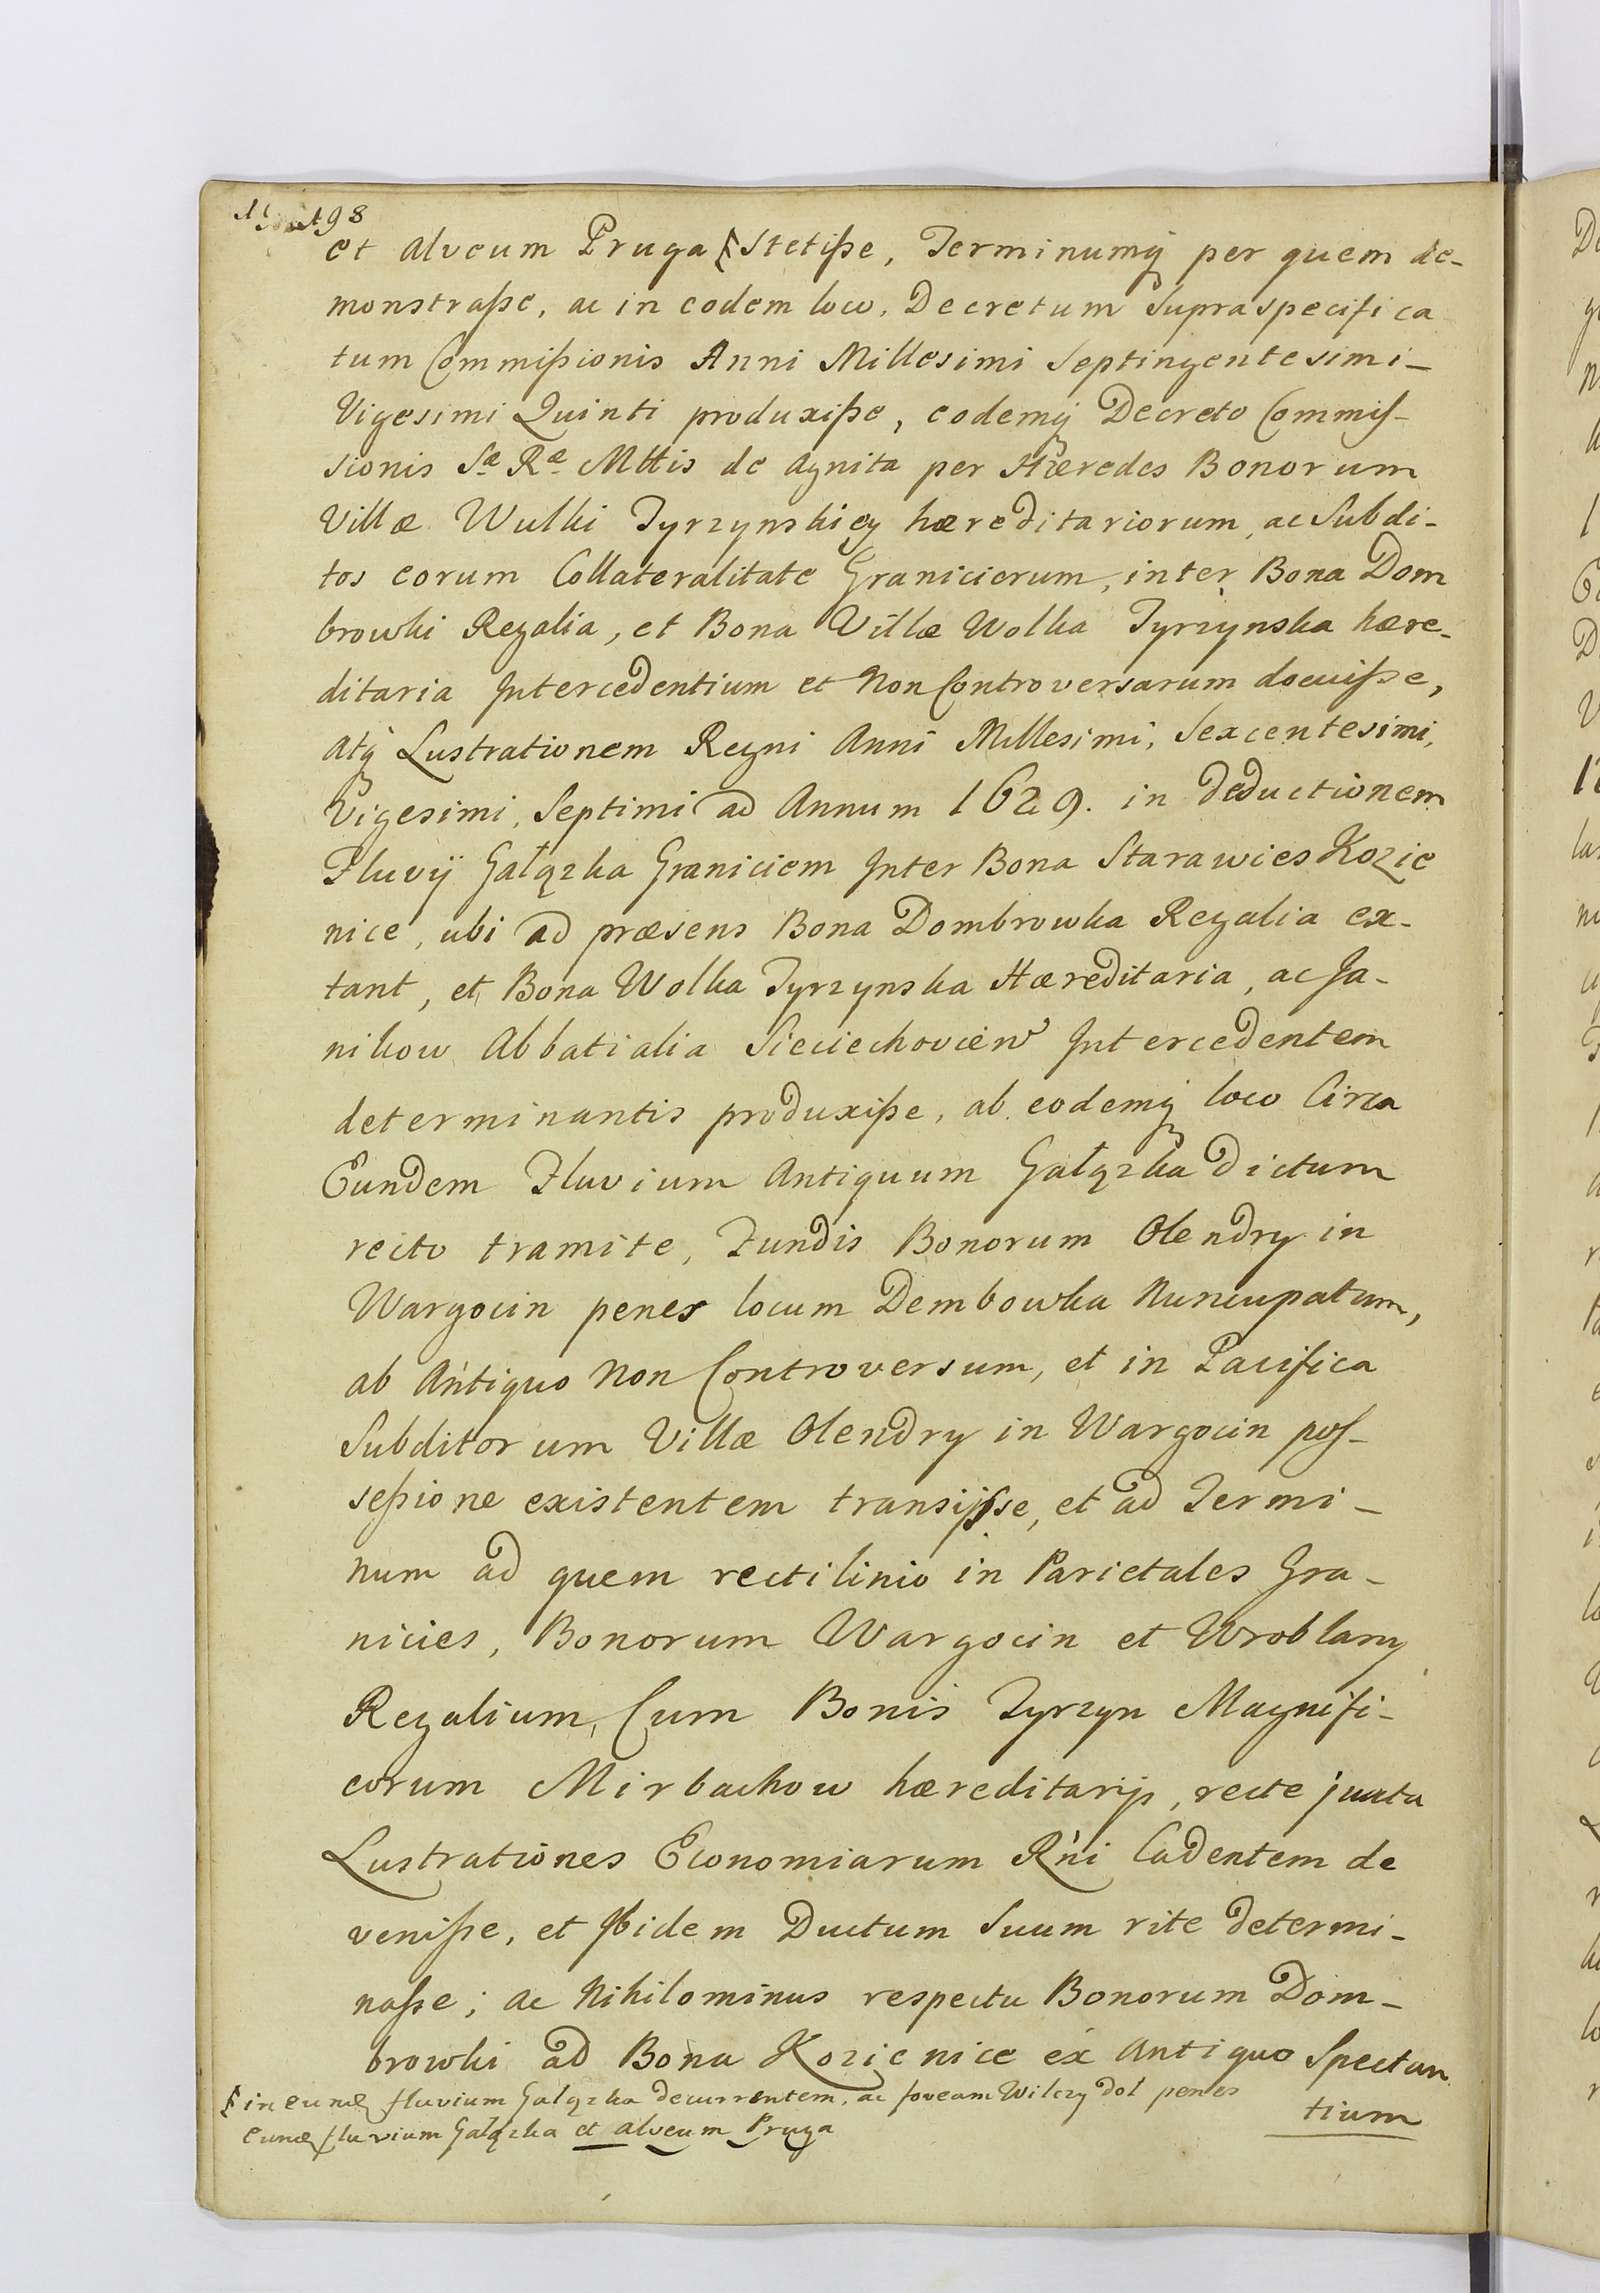 198
et alveum Pruga Stetiſse, Terminumq̃ per quem de-
monstraſse, ac in eodem loco, Decretum Supraspecifica
tum Commiſsionis Anni Millesimi Septingentesimi-
Vigesimi Quinti produxiſse, eodemq̃ Decreto Commiſ-
sionis Sæ Ræ Mttis de agnita per Hæredes Bonorum
Villæ Wulki Tyrzynskiey hæreditariorum, ac Subdi-
tos eorum Collateralitate Granicierum, inter Bona Dom
browki Regalia, et Bona Villæ Wolka Tyrzynska hære-
ditaria Intercedentium et Non Controversarum docuiſse,
atq̃ Lustrationem Regni Anni Millesimi, Sexcentesimi,
Vigesimi, Septimi ad Annum 1629. in deductionem
Fluvÿ Gałązka Graniciem Inter Bona Starawies Kozie
nice, ubi ad præsens Bona Dombrowka Regalia ex-
tant, et Bona Wolka Tyrzynska Hæreditaria, ac Ja-
nikow Abbatialia Sieciechovien Intercedentem
determinantis produxiſse, ab eodemq̃ loco Circa
Eundem Fluvium Antiquum Gałązka dictum
recto tramite, Fundis Bonorum Olendry in
Wargocin penes locum Dembowka Nuncupatum,
ab Antiquo Non Controversum, et in Pacifica
Subditorum Villæ Olendry in Wargocin poſ-
seſsione existentem transijſse, et ad Termi-
num ad quem rectilinio in Parietales Gra-
nicies, Bonorum Wargocin et Wroblany
Regalium, Cum Bonis Tyrzyn Magnifi-
corum Mirbachow hæreditarijs, recte juxta
Lustrationes Economiarum R'ni Cadentem de
veniſse, et Ibidem Ductum Suum rite determi-
naſse; ac Nihilominus respectu Bonorum Dom-
browki ad Bona Kozienice ex Antiquo Spectan
tium
in eund fluvium Gałązka decurrentem, ac foveam Wilczy doł penes
eund fluvium Gałązka et alveum Pruga